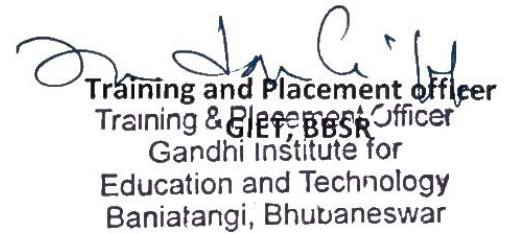 Training and Placement officer
GIET, BBSR
Training & Placement Officer
Gandhi Institute for
Education and Technology
Baniatangi, Bhubaneswar